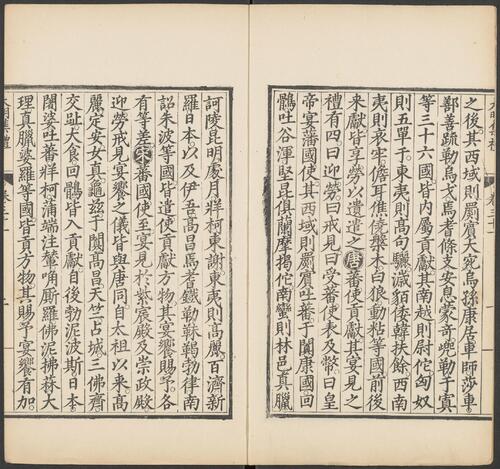 之後其西域則罽賓大宛烏孫康居車師莎車
鄯善疏勒烏弋焉耆條支安息蒙奇兜勒于寘
等三十六國皆内屬貢獻其南越則尉佗匈奴
則五單于東夷則高句驪濊貊倭韓扶餘西南
夷則哀牢儋耳焦僥槃木白狼動黏等國前後
來獻皆享勞以遺遣之唐蕃使貢獻其宴見之
禮有四曰迎勞曰戒見曰受蕃使表及幣曰皇
帝宴藩國使其西域則罽賓吐蕃于闐康國回
鶻吐谷渾堅昆俱蘭摩揭佗南蠻則林邑真臘
訶陵昆明處月牂柯東謝東夷則高麗百濟新
羅日本以及伊吾高昌焉耆鐵勒靺鞨勃律南
詔朱波等國皆遣使貢獻方物其宴饗賜予各
有等差宋蕃國使至宴見於紫宸殿及崇政殿
迎勞戒見宴饗之儀皆與唐同自太祖以來高
麗定安女真龜玆于闐高昌天竺占城三佛齊
交趾大食回鶻皆入貢獻自後勃泥波斯日本
闍婆吐蕃牂柯蒲端注輦㖠厮羅佛泥拂菻大
理真臘婆羅等國皆貢方物其賜予宴饗有加